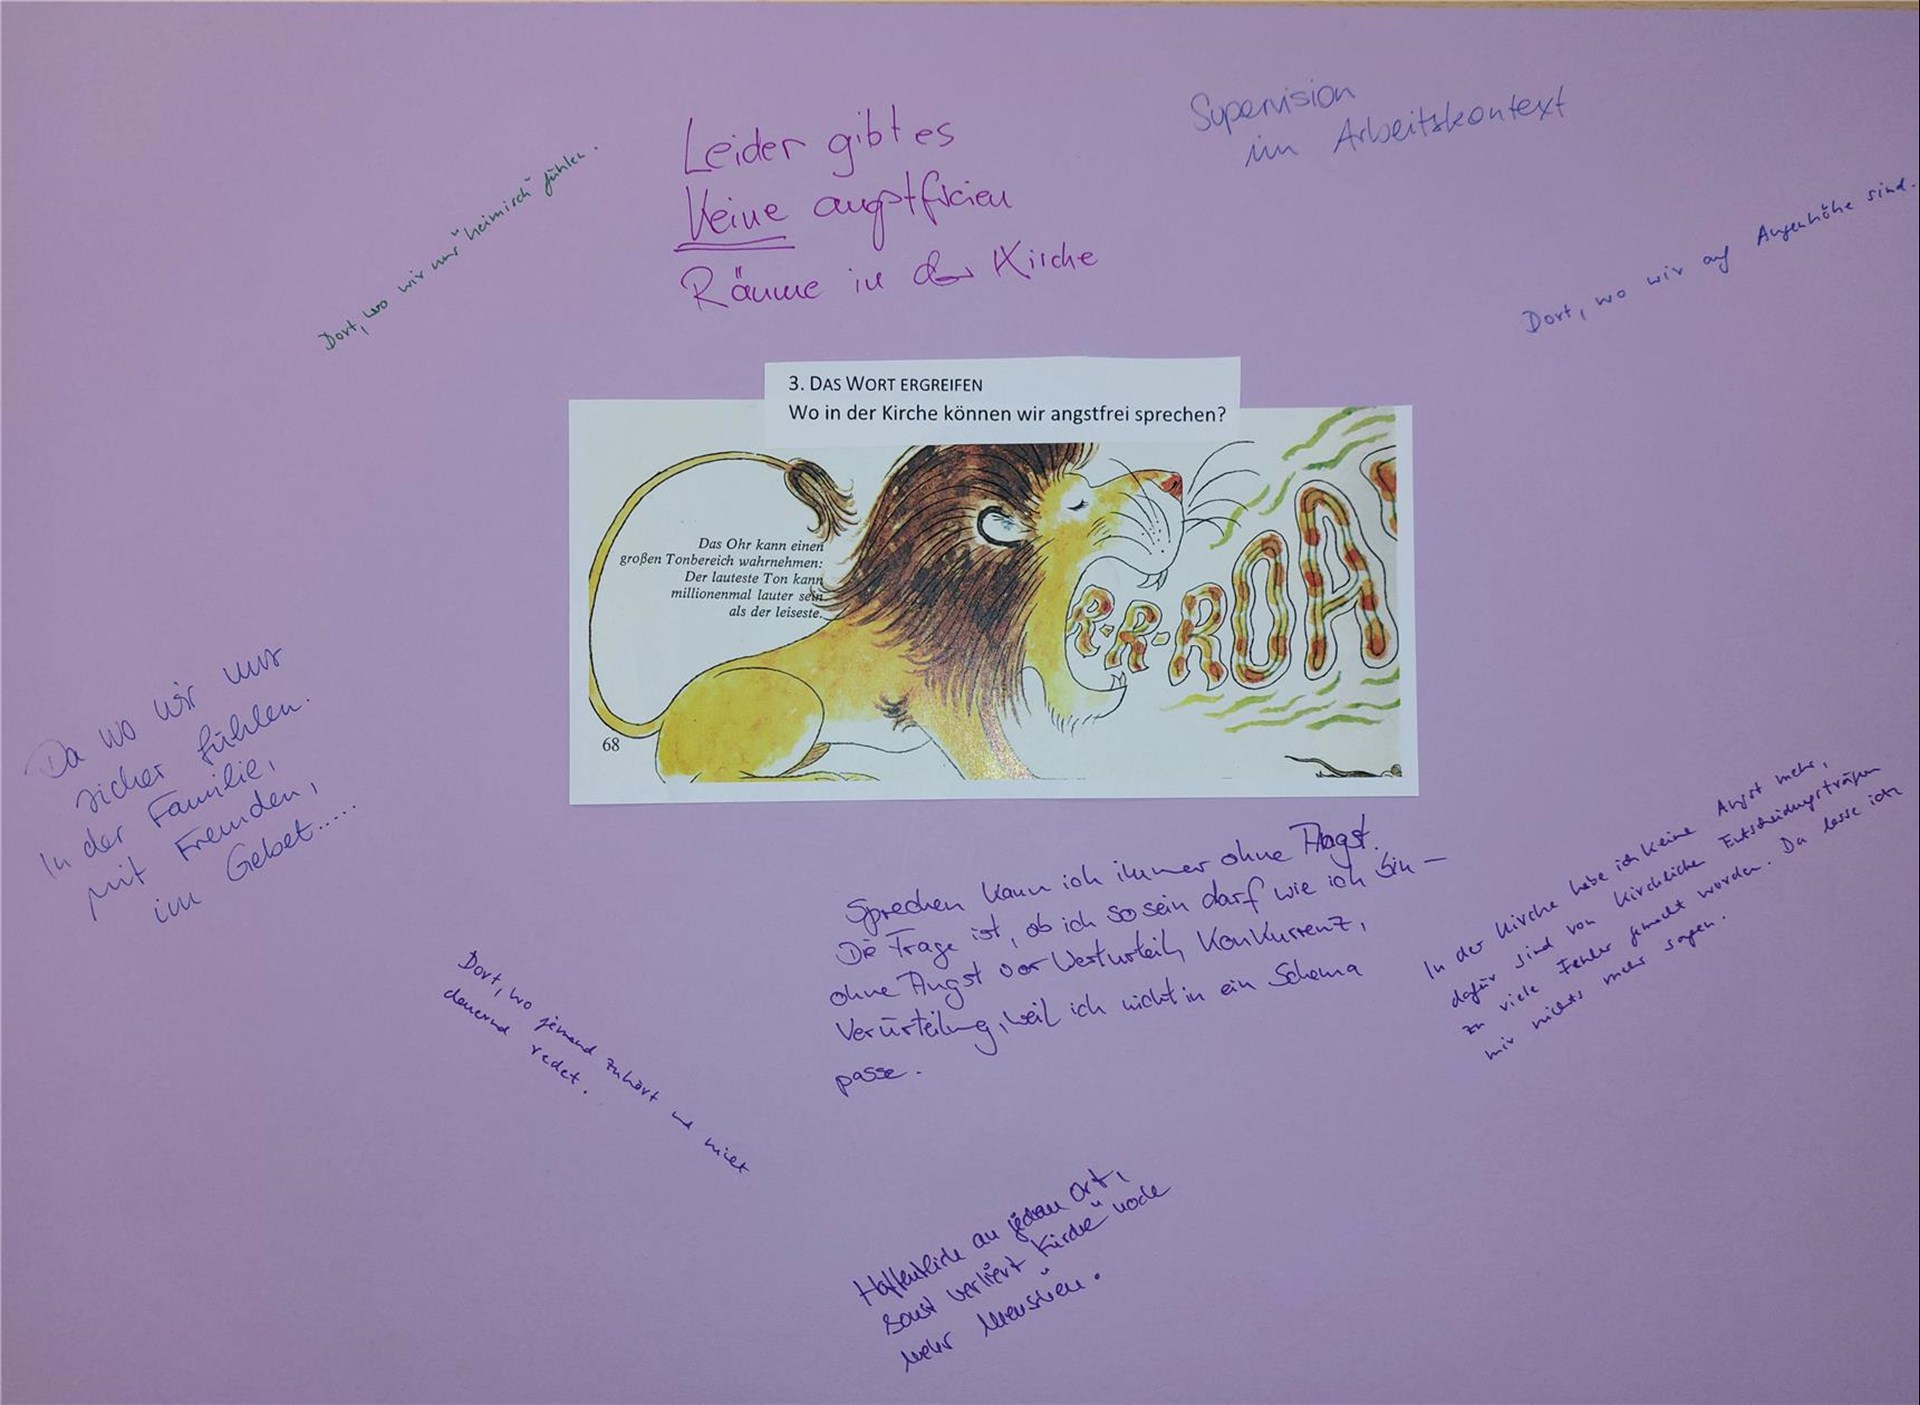 Leider gibt es
Keine angstfreien
Räume in der Kirche
Supervision
im Arbeitskontext
Dort, wo wir uns "heimisch" fühlen.
Dort, wo wir auf Augenhöhe sind.
3. DAS WORT ERGREIFEN
Wo in der Kirche können wir angstfrei sprechen?
Das Ohr kann einen
großen Tonbereich wahrnehmen:
Der lauteste Ton kann
millionenmal lauter sein
als der leiseste.
R-R-ROA
68
Da wo wir uns
sicher fühlen.
In der Familie,
mit Freunden,
im Gebet.....
Sprechen kann ich immer ohne Angst.
Die Frage ist, ob ich so sein darf wie ich bin –
ohne Angst vor Werturteil, Konkurrenz,
Verurteilung, weil ich nicht in ein Schema
passe.
In der Kirche habe ich keine Angst mehr,
dafür sind von kirchlichen Entscheidungsträgern
zu viele Fehler gemacht worden. Da lasse ich
mir nichts mehr sagen.
Dort, wo jemand zuhört und nicht
dauernd redet.
Hoffentlich an jedem Ort,
sonst verliert "Kirche" noch
mehr Menschen.